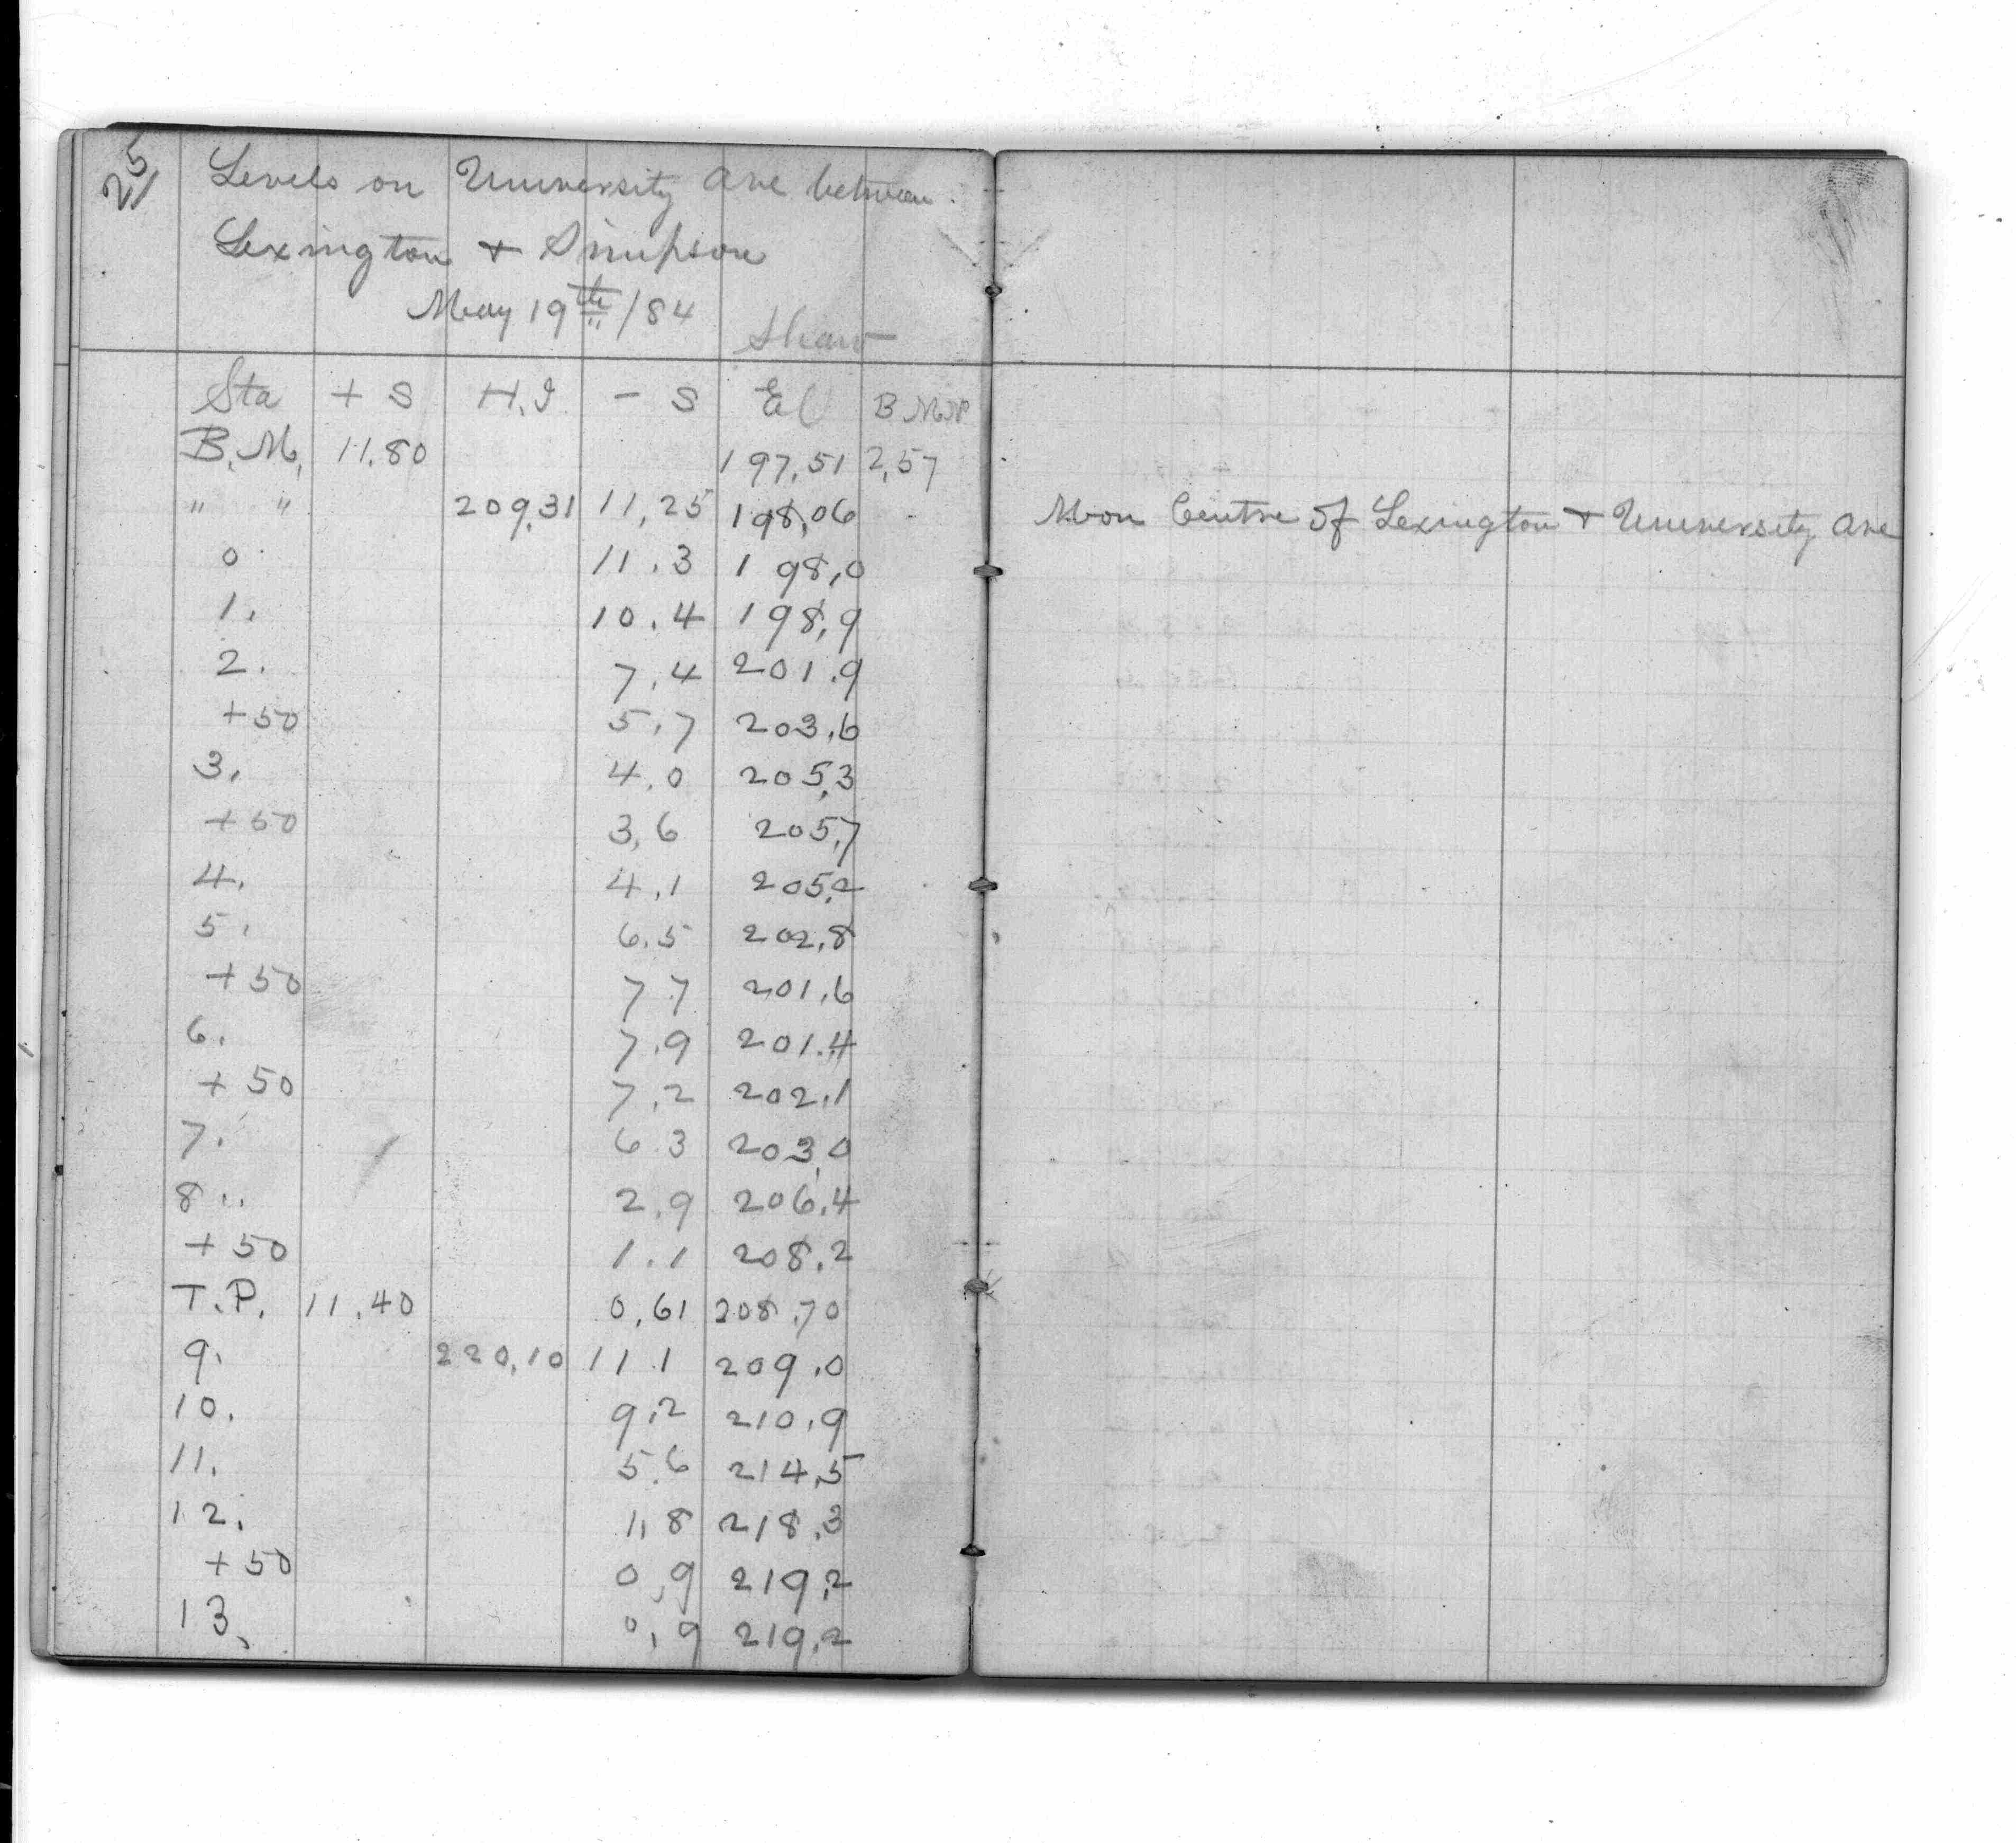 5
21
Levels on University Ave between
Lexington + Simpson
May 19th /84
Shaw
Sta + S H.I - S El B M No
B.M. 11.80 197.51 2,57
" " 209.31 11.25 198.06 Mon Centre of Lexington + University Ave
0 11.3 198.0
1. 10.4 198.9
2. 7.4 201.9
+50 5.7 203.6
3. 4.0 205.3
+50 3.6 205.7
4. 4.1 205.2
5. 6.5 202.8
+50 7.7 201.6
6. 7.9 201.4
+50 7.2 202.1
7. 6.3 203.0
8.. 2.9 206.4
+50 1.1 208.2
T.P. 11.40 0.61 208.70
9. 220.10 11.1 209.0
10. 9.2 210.9
11. 5.6 214.5
12. 1.8 218.3
+50 0.9 219.2
13. 0.9 219.2